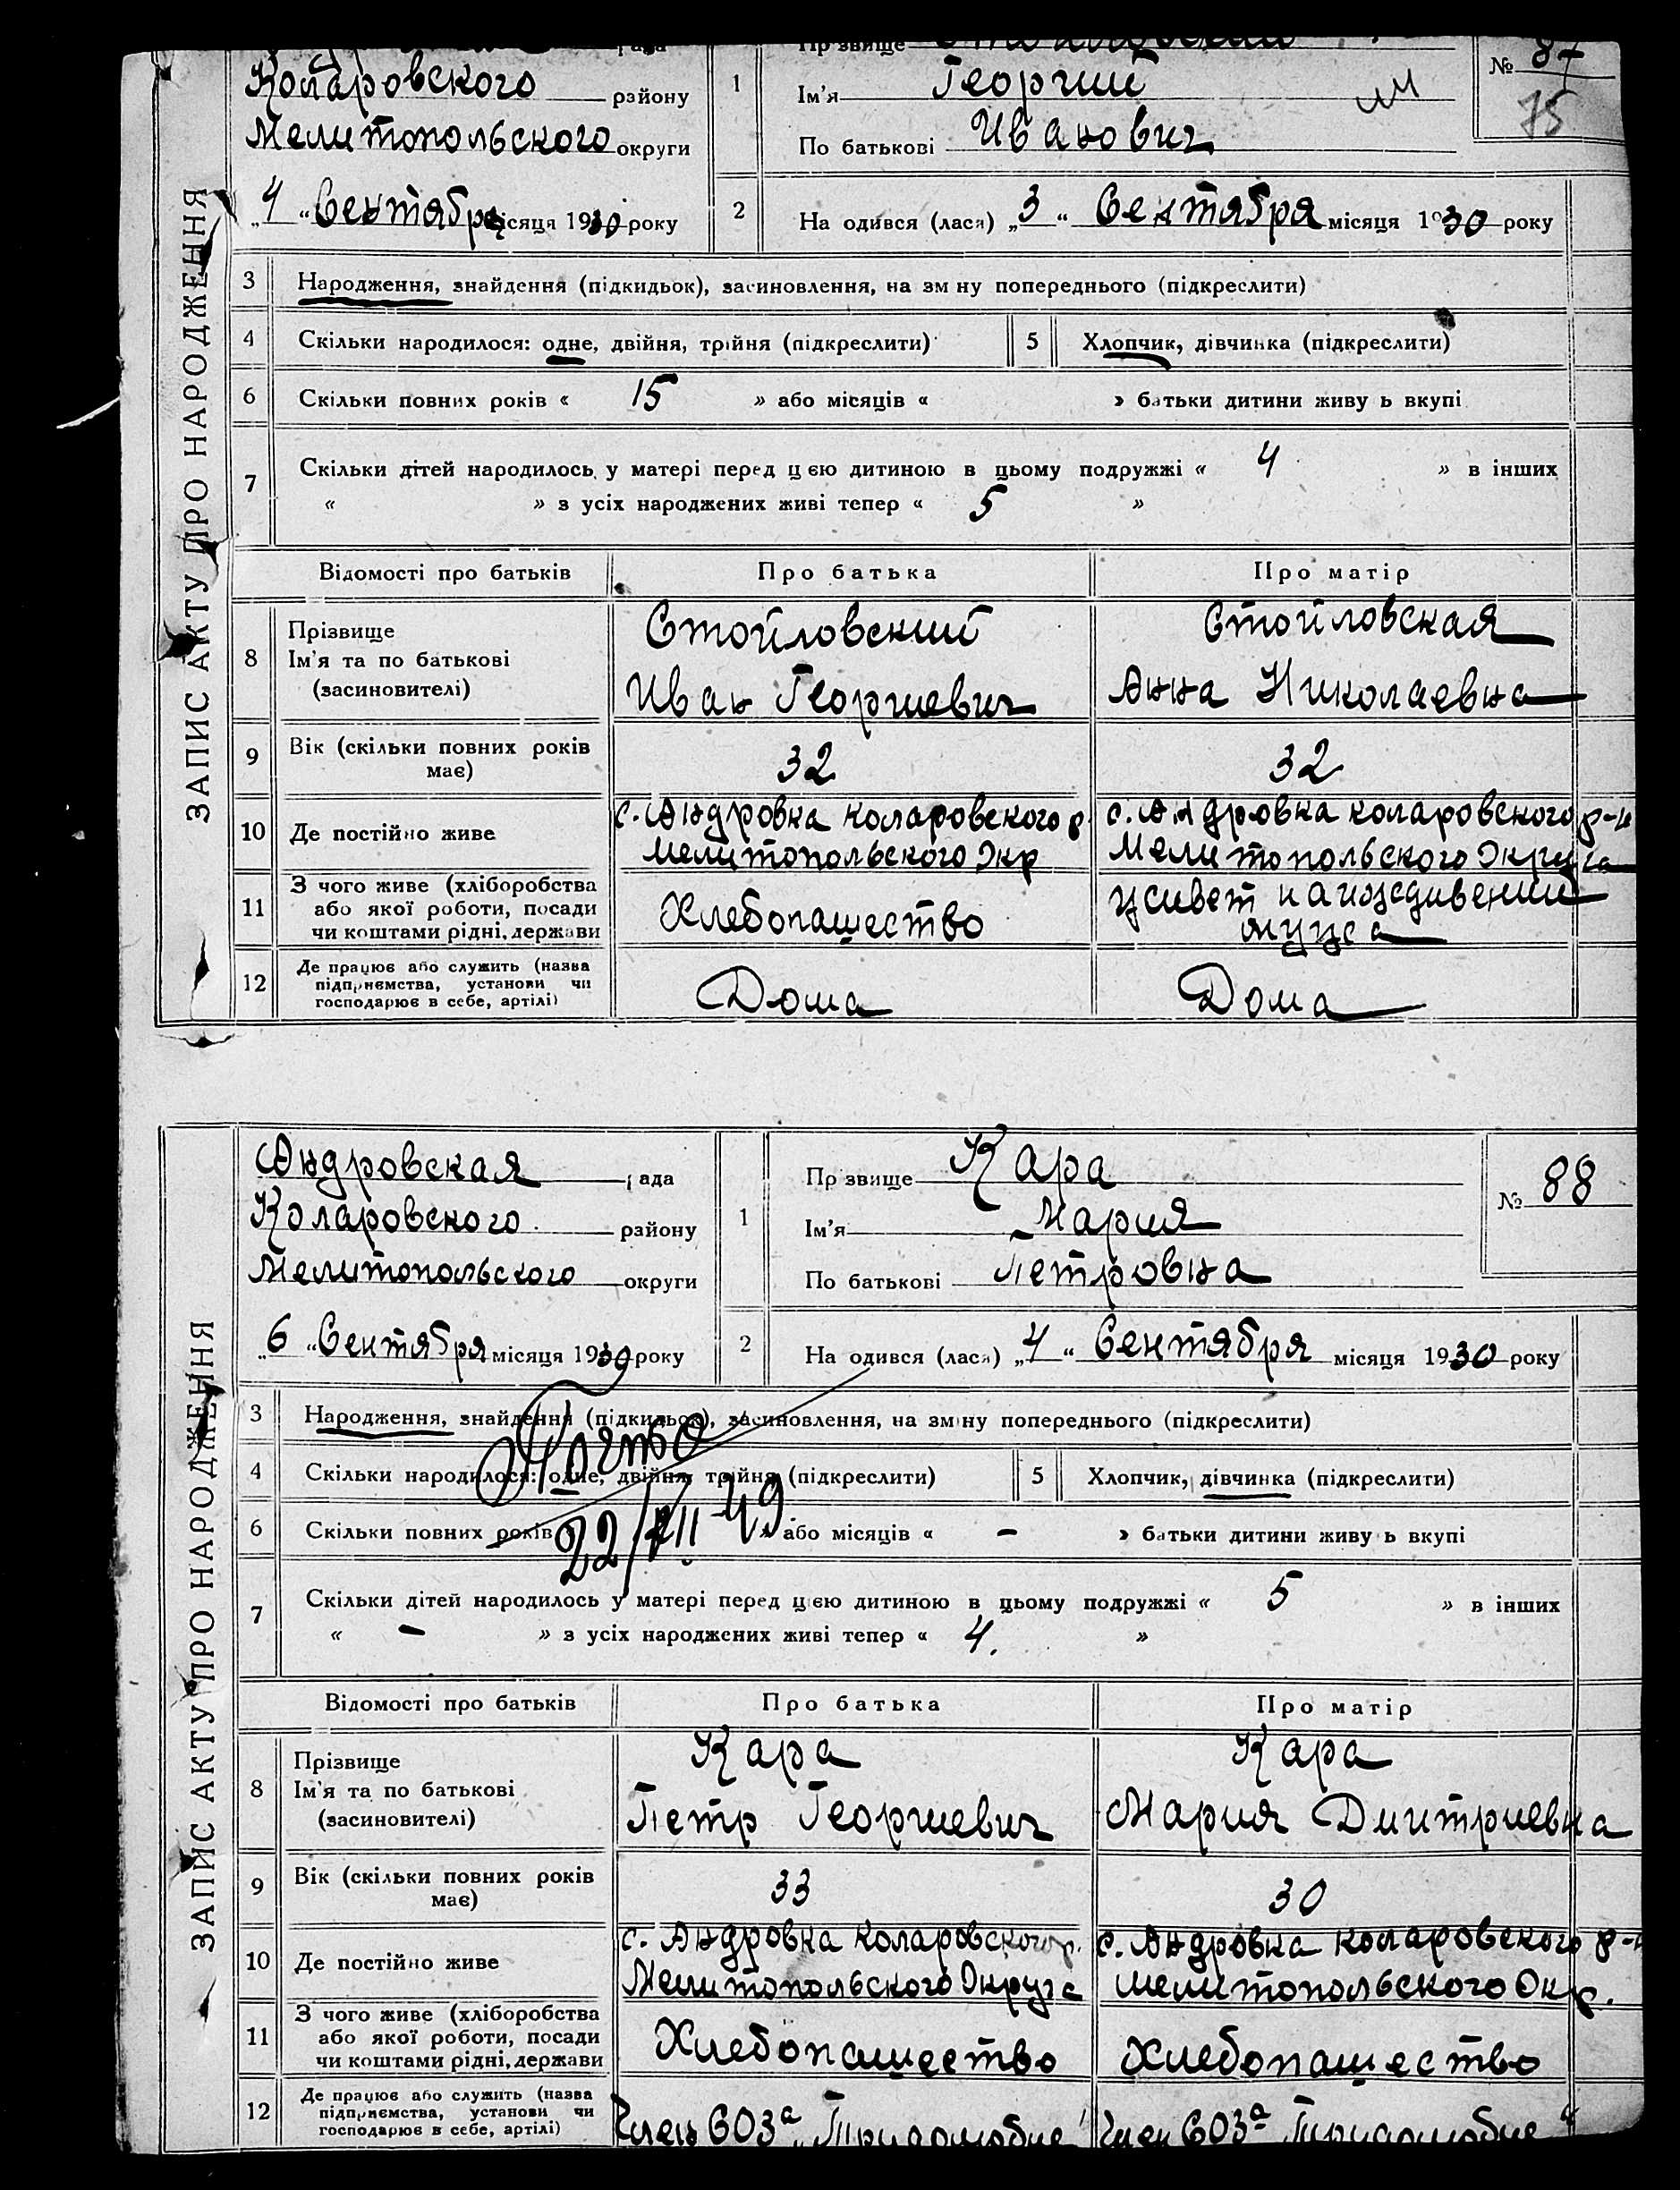 рада
Коларовского району
Мелитопольского округи
„4“ Сентября місяця 1930 року
1
Пр звище
Ім'я Георгий
По батькові Иванович
№ 87
75
2
На одився (лася) „3“ Сентября місяця 1930 року
ЗАПИС АКТУ ПРО НАРОДЖЕННЯ
3 Народження, знайдення (підкидьок), засиновлення, на зм ну попереднього (підкреслити)
4 Скільки народилося: одне, двійня, трійня (підкреслити) 5 Хлопчик, дівчинка (підкреслити)
6 Скільки повних років « 15 » або місяців « » батьки дитини живу ь вкупі
7 Скільки дітей народилось у матері перед цією дитиною в цьому подружжі « 4 » в інших
« » з усіх народжених живі тепер « 5 »
Відомості про батьків Про батька Про матір
8 Прізвище
Ім'я та по батькові
(засиновителі)
Стойловский
Иван Георгиевич
Стойловская
Анна Николаевна
9 Вік (скільки повних років
має)
32
32
10 Де постійно живе
с. Андровка коларовского р.
Мелитопольского Окр
с. Андровка коларовского р-н
Мелитопольского Округа
11 З чого живе (хліборобства
або якої роботи, посади
чи коштами рідні, держави
Хлебопашество
живет на иждивении
мужа
12 Де працює або служить (назва
підприємства, установи чи
господарює в себе, артілі)
Дома
Дома
Андровская рада
Коларовского району
Мелитопольского округи
„6“ Сентября місяця 1930 року
1
Пр звище Кара
Ім'я Мария
По батькові Петровна
№ 88
2
На одився (лася) „4“ Сентября місяця 1930 року
ЗАПИС АКТУ ПРО НАРОДЖЕННЯ
3 Народження, знайдення (підкидьок), засиновлення, на зміну попереднього (підкреслити)
4 Скільки народилося: одне, двійня, трійня (підкреслити) 5 Хлопчик, дівчинка (підкреслити)
6 Скільки повних років » або місяців « – » батьки дитини живу ь вкупі
22/VII-49
7 Скільки дітей народилось у матері перед цією дитиною в цьому подружжі « 5 » в інших
« – » з усіх народжених живі тепер « 4. »
Відомості про батьків Про батька Про матір
8 Прізвище
Ім'я та по батькові
(засиновителі)
Кара
Петр Георгиевич
Кара
Мария Дмитриевна
9 Вік (скільки повних років
має)
33
30
10 Де постійно живе
с. Андровка коларовского р.
Мелитопольского Округа
с. Андровка коларовского р-н
Мелитопольского Окр.
11 З чого живе (хліборобства
або якої роботи, посади
чи коштами рідні, держави
Хлебопашество
Хлебопашество
12 Де працює або служить (назва
підприємства, установи чи
господарює в себе, артілі)
Член СОЗа
Член СОЗа